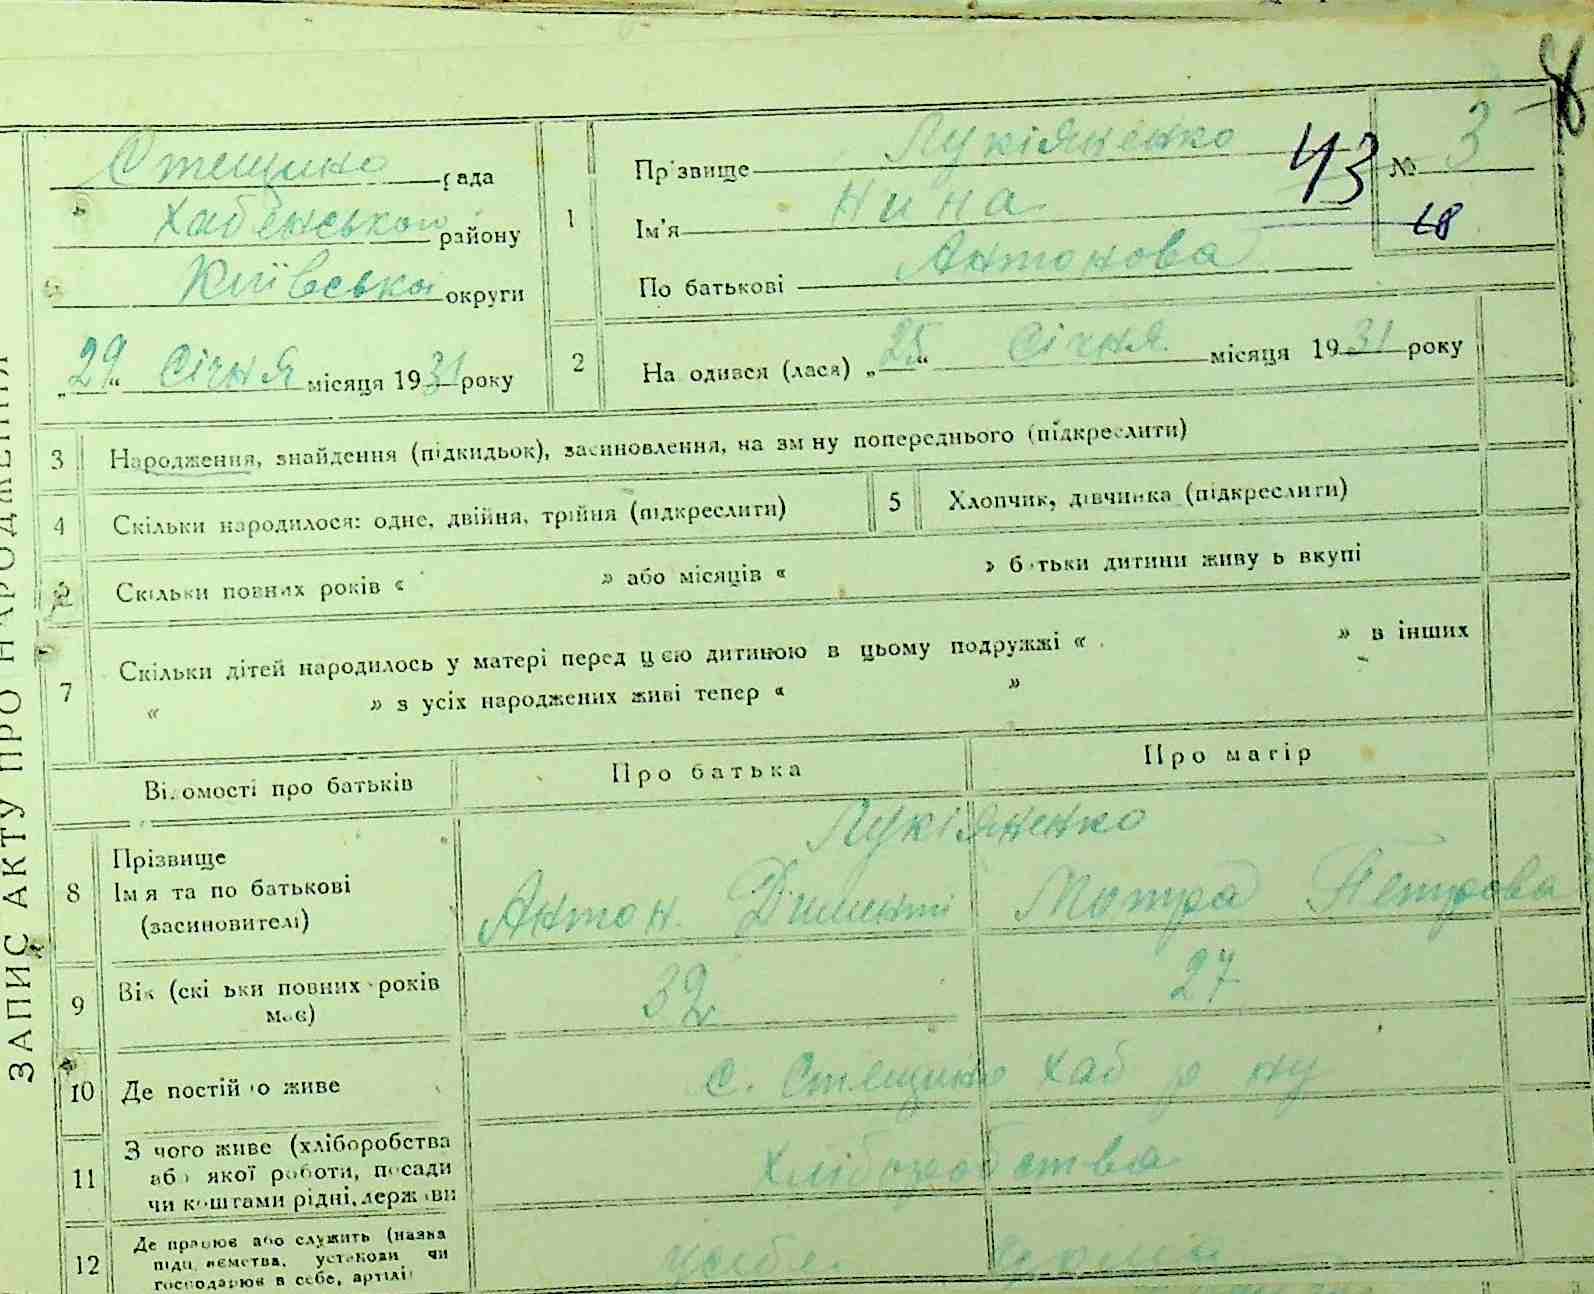 ЗАПИС АКТУ ПРО НАРОДЖЕННЯ
Стещино рада
Хабенського району
Київської округи
„29“ Січня місяця 1931 року
1
Прізвище Лукіяненко
Ім'я Нина
По батькові Антонова
43
№ 3
18
2
На одився (лася) „25“ Січня місяця 1931 року
3 Народження, знайдення (підкидьок), засиновлення, на зм ну попереднього (підкреслити)
4 Скільки народилося: одне, двійня, трійня (підкреслити)
5 Хлопчик, дівчинка (підкреслити)
Скільки повних років « » або місяців « » б тьки дитини живу ь вкупі
7 Скільки дітей народилось у матері перед цією дитиною в цьому подружжі « » в інших
« » з усіх народжених живі тепер « »
Ві омості про батьків
Про батька
Про матір
8
Прізвище
Ім я та по батькові
(засиновителі)
Лукіяненко
Антон Дименті
Мотра Петрова
9
Вік (скі ьки повних років
має)
32
27
10 Де постій о живе
с. Стещино Хаб р ну
11
З чого живе (хліборобства
або якої роботи, посади
чи коштами рідні, держ ви
Хліборобства
12
Де працює або служить (назва
підп ємства, установи чи
господарює в себе, артілі